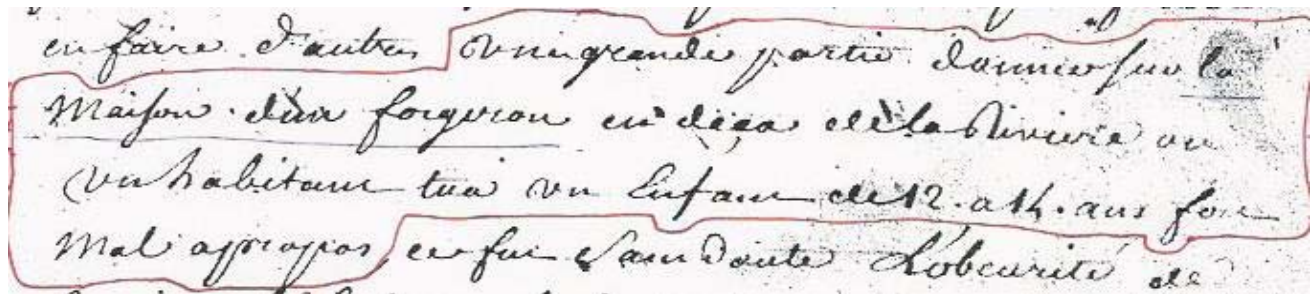 en faire d'autres vne grande partie donner sur la
Maison d'un forgeron en deça de la Riviere ou
vn habitant tua vn Enfant de 12. a 14. ans fort
Mal apropos, ce fut sans doute L'obcurité de